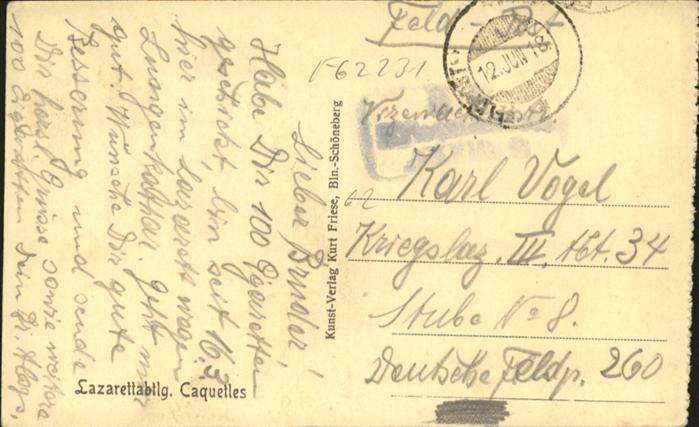 Feld-Post
12.JUN.18
F62231
Vizewachtmstr.
62
Karl Vogel
Kriegslaz. III. Abt. 34
Stube No 8.
Deutsche Feldp. 260
Kunst-Verlag Kurt Friese, Bln.-Schöneberg
Lieber Bruder!
Habe Dir 100 Zigaretten
geschickt, bin seit 16.3
hier im Lazarett wegen
Lungenkatarrh. Geht mir
gut. Wünsche Dir gute
Besserung und sende
Dir herzl. Grüsse sowie weitere
100 Zigaretten Dein Br. Aloys.
Lazarettabtlg. Caquelles